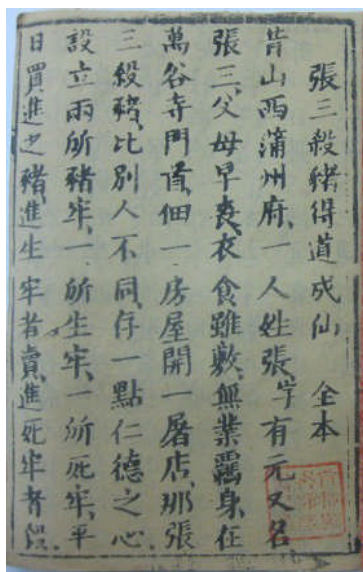 張三殺豬得道成仙 全本
昔山西蒲州府一人姓張字有元又名
張三父母早喪衣食雖敷無業覊身在
萬谷寺門首佃一房屋開一屠店那張
三殺豬比別人不同存一點仁德之心
設立兩所豬牢一所生牢一所死牢平
日買進之豬進生牢者賣進死牢者殺